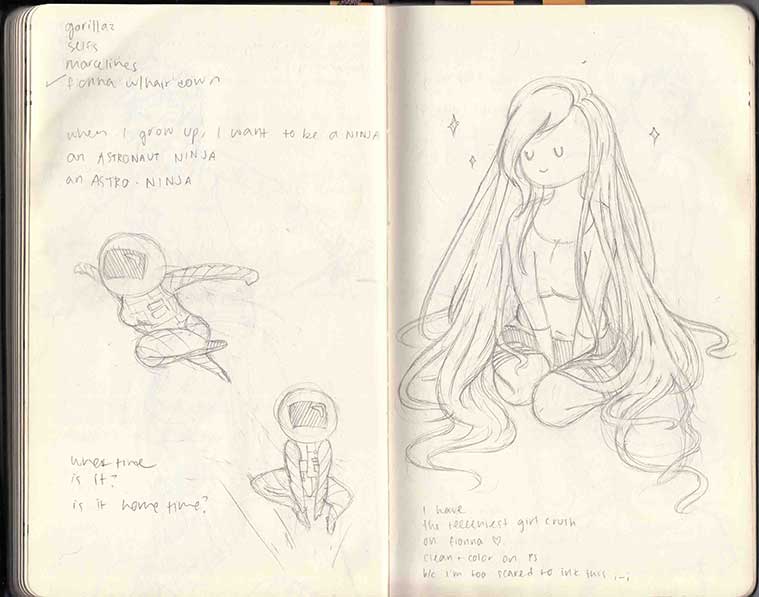 gorillaz
selfs
marcelines
✓ fionna w/hair down
when I grow up, I want to be a NINJA
an ASTRONAUT NINJA
an ASTRO-NINJA
what time
is it?
is it home time?
I have
the teeeniest girl crush
on fionna ♡
clean + color on PS
b/c i'm too scared to ink this ;-;